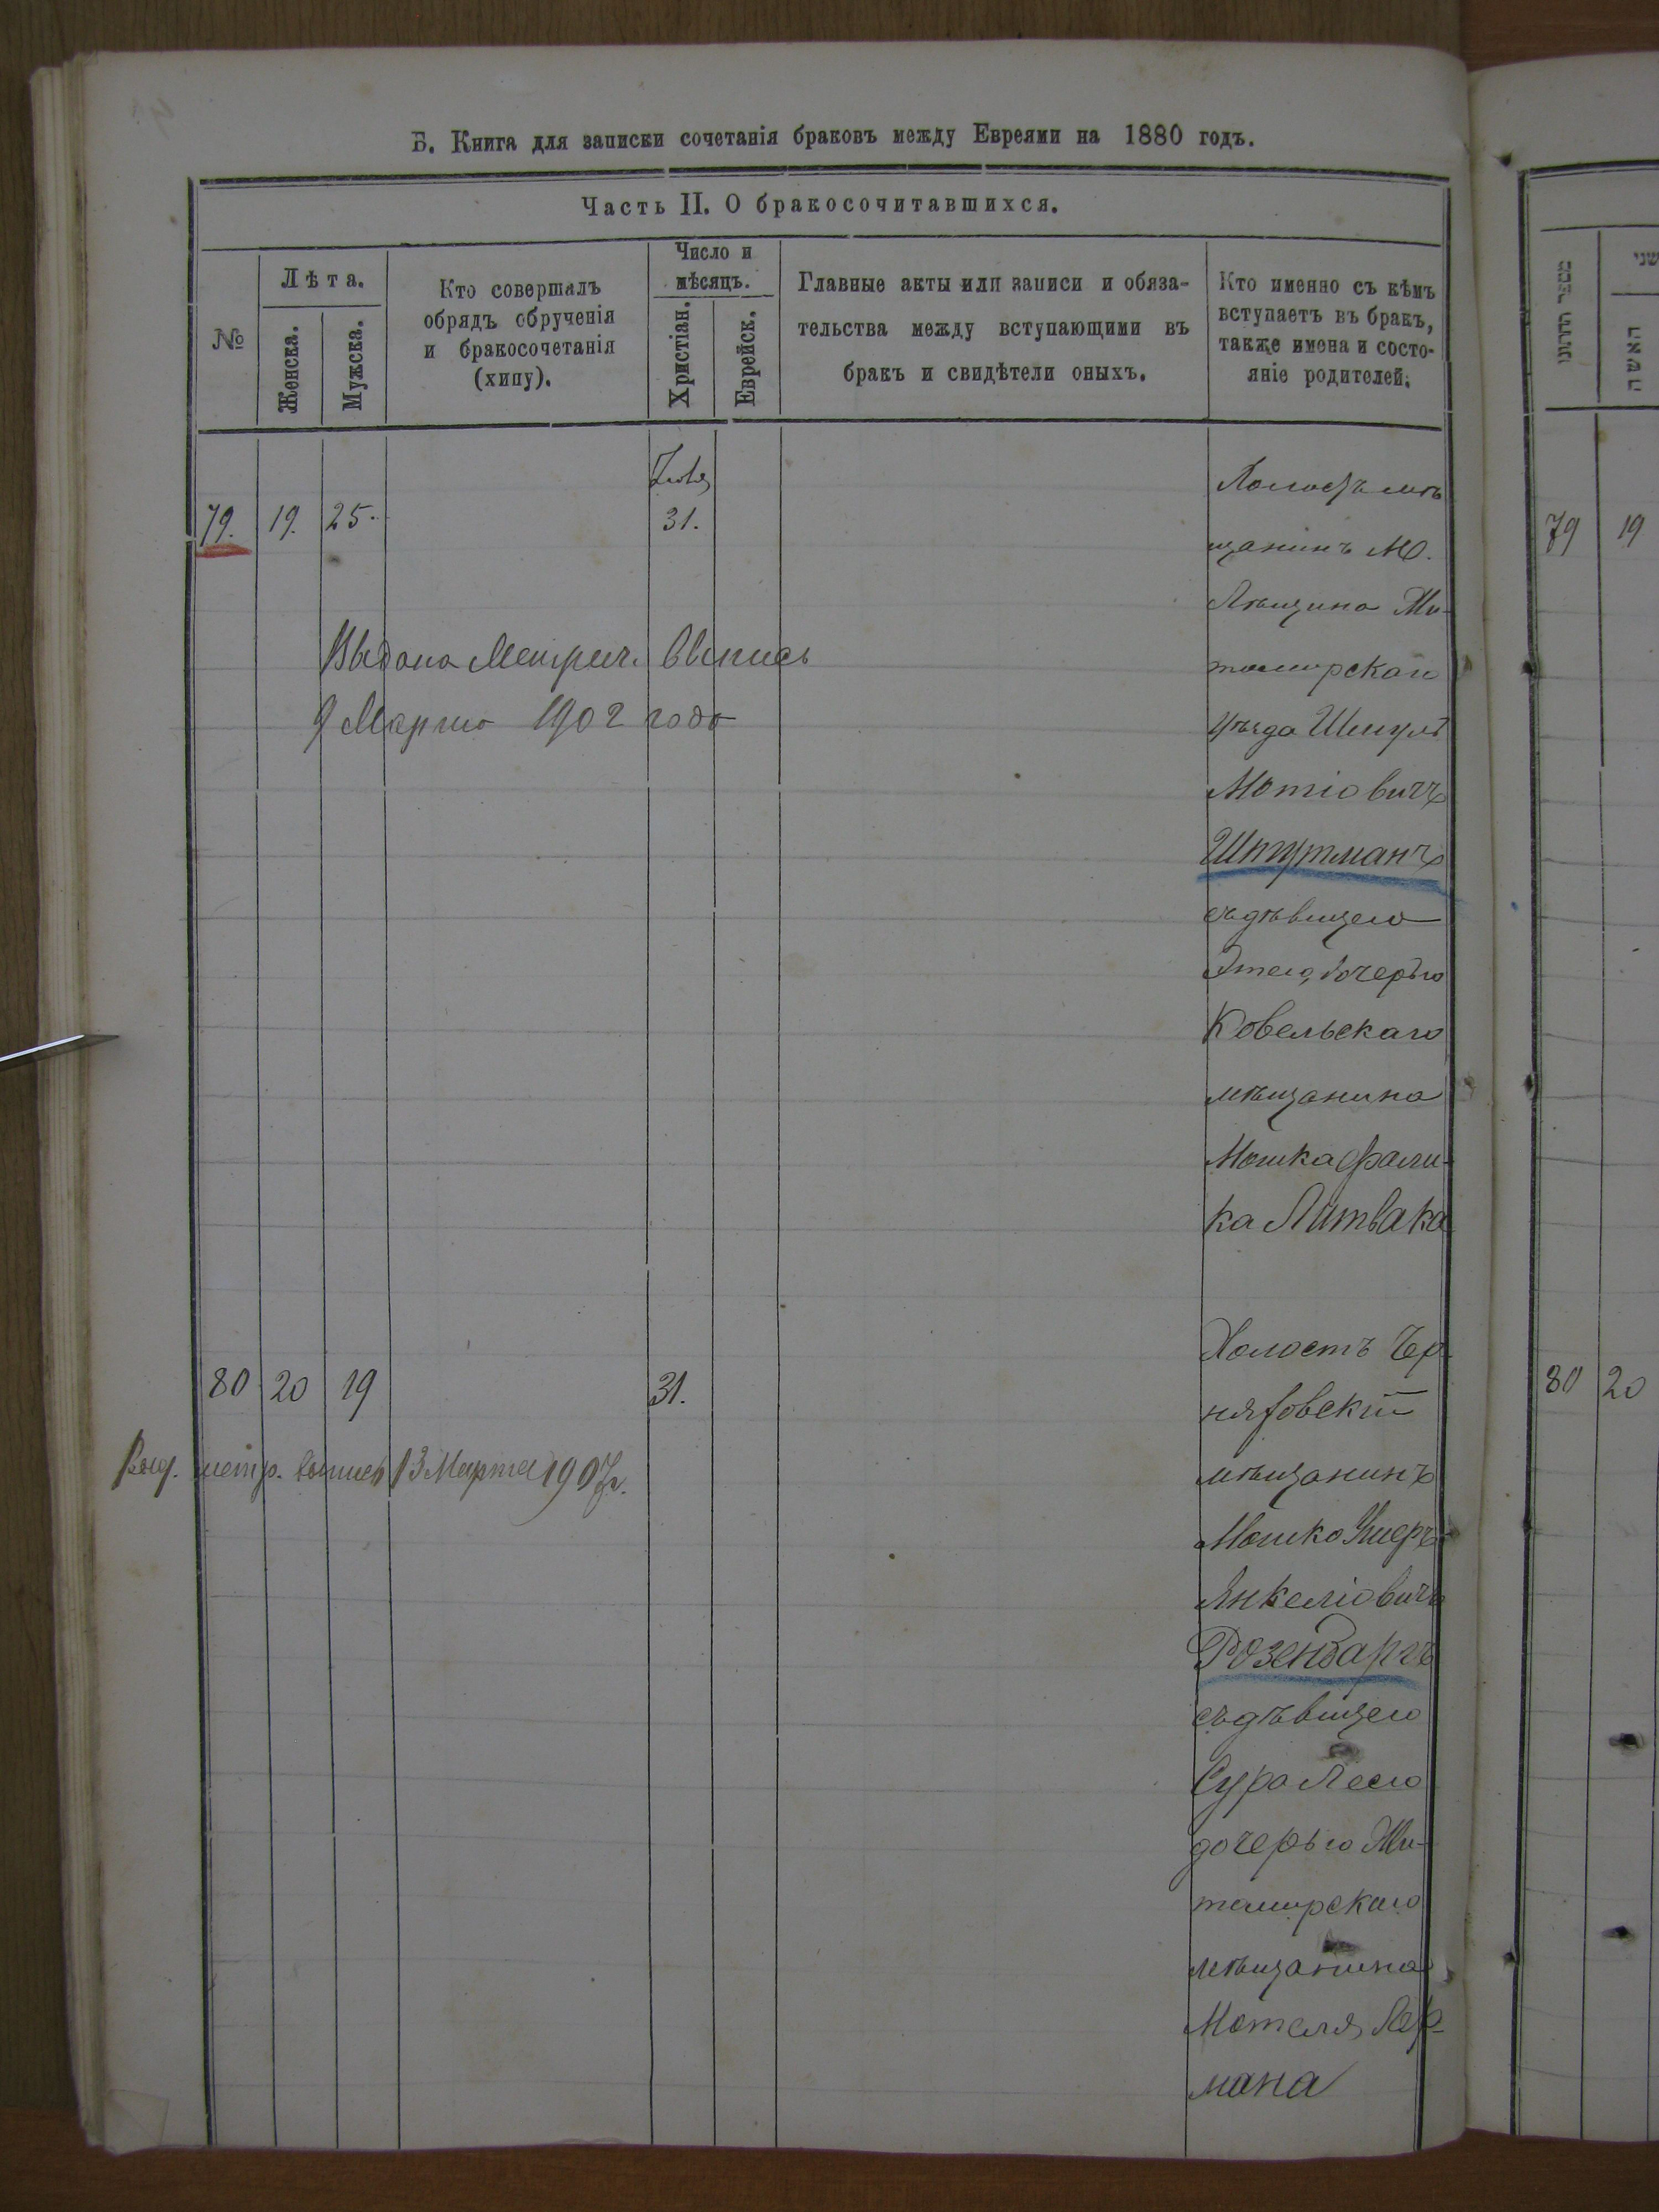 Б. Книга для записки сочетанія браковъ между Евреями на 1880 годъ.
Часть II. О бракосочитавшихся.
№
Лѣта.
Женска.
Мужска.
Кто совершалъ
обрядъ обрученія
и бракосочетанія
(хипу).
Число и
мѣсяцъ.
Христіан.
Еврейск.
Главные акты или записи и обяза-
тельства между вступающими въ
бракъ и свидѣтели оныхъ.
Кто именно съ кѣмъ
вступаетъ въ бракъ,
также имена и состо-
яніе родителей.
79. 19. 25. Іюля 31.
Холостъ мѣ
щанинъ М.
Лѣщина Жи-
томирскаго
уѣзда Шмуль
Мотіовичъ
Штурманъ
съ дѣвицею
Этею, дочерью
Ковельскаго
мѣщанина
Мошка Фали-
ка Литвака
Выдана Метрич. Выпись
9 Марта 1902 года
80 20 19 31.
Холостъ Чер
няховскій
мѣщанинъ
Мошко Ушеръ
Янкеліовичъ
Розенбаргъ
съ дѣвицею
Сура Леею
дочерью Жи-
томирскаго
мѣщанина
Мотеля Лер-
мана
Выд. метр. выпись 13 Марта 1907 г.
79 19
80 20